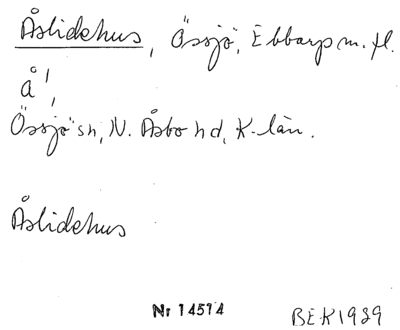 Åslidehus, Össjö, Ebbarp m. fl.
Å 1,
Össjö sn, N. Åsbo hd, K-län.
Åslidehus
Nr 14514
BEK1939